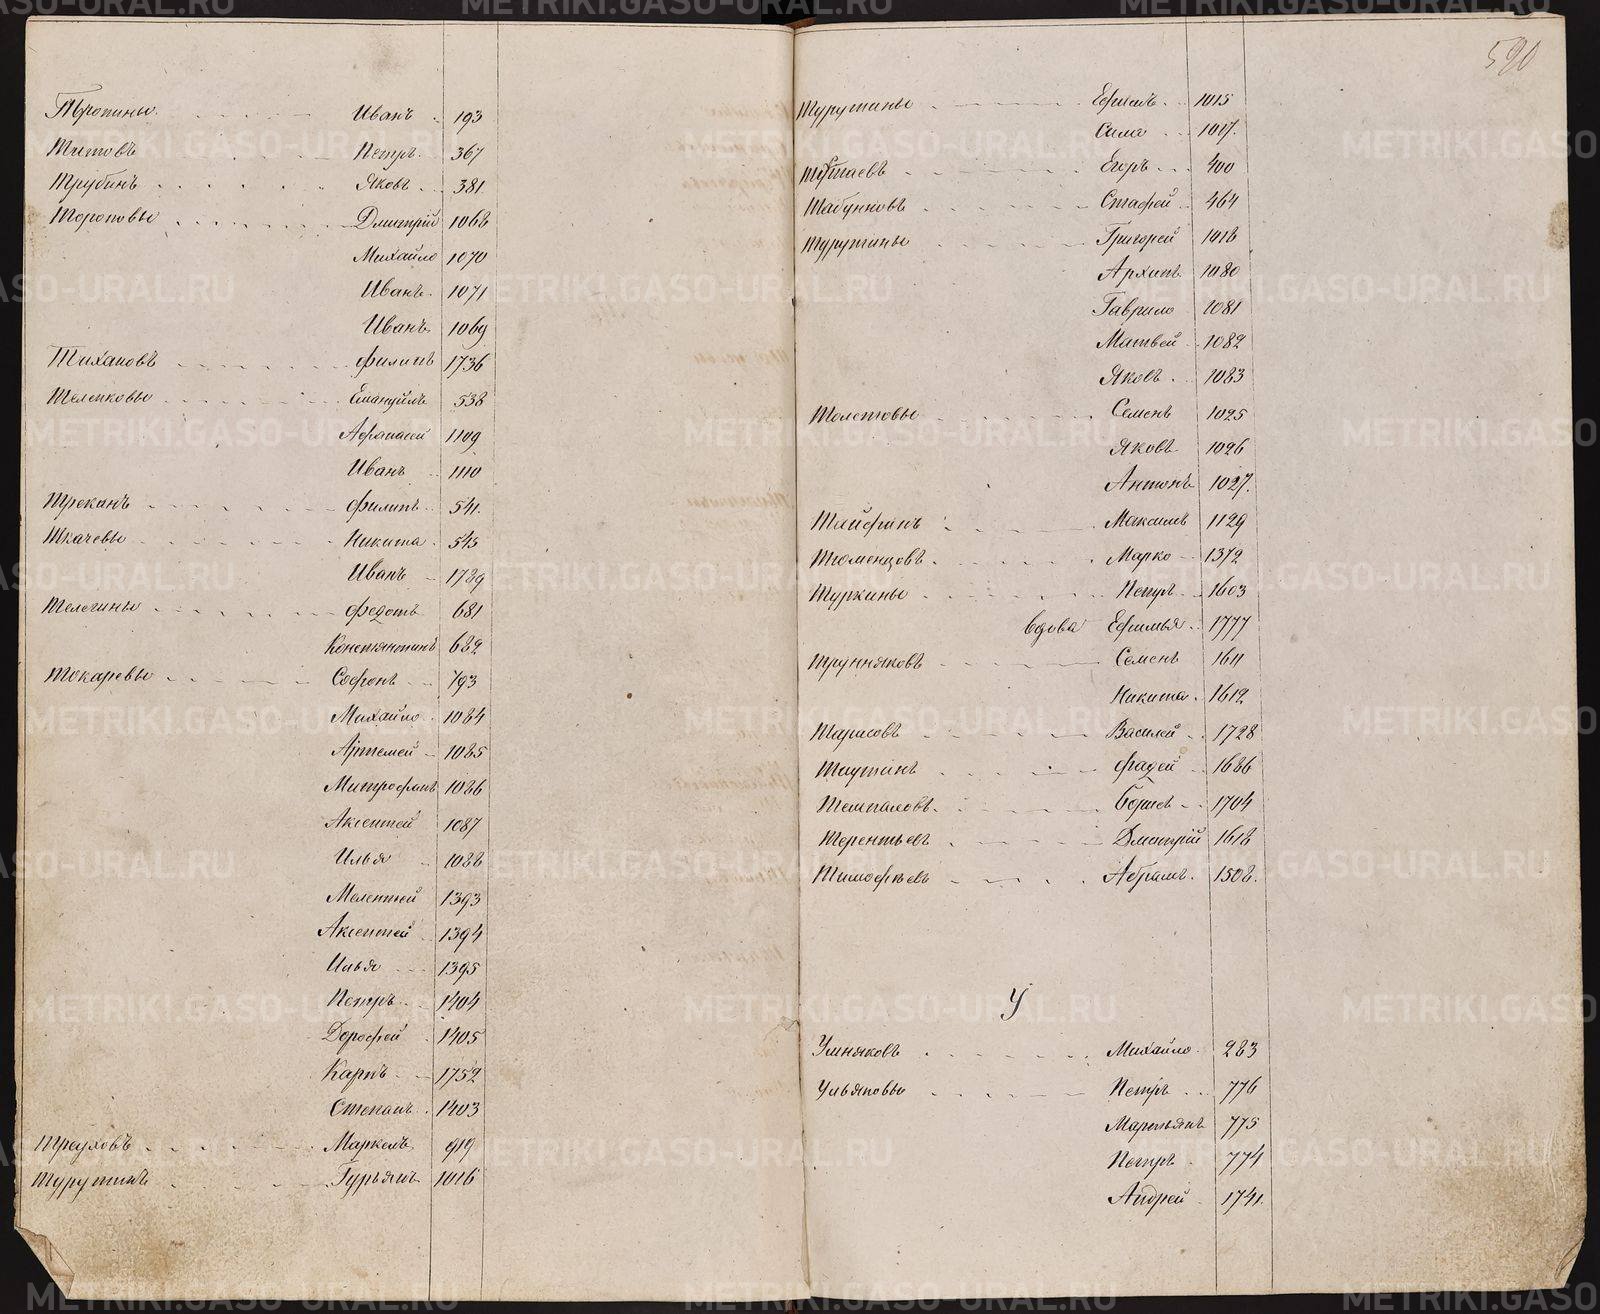 Тропины Иванъ 193
Титовъ Петръ 367
Трубинъ Яковъ 381
Тороповы Дмитрій 1068
Михайло 1070
Иванъ 1071
Иванъ 1069
Тихановъ Филипъ 1736
Телепковы Емануйлъ 538
Афанасей 1109
Иванъ 1110
Трекинъ Филипъ 541.
Ткачевы Никита 545
Иванъ 1789
Телегины Федотъ 681
Констянтинъ 682
Токаревы Софонъ 793
Михайло 1084
Артемей 1085
Митрофанъ 1086
Аксентей 1087
Илья 1088
Мелентей 1393
Аксентей 1394
Илья 1395
Петръ 1404
Дорофей 1405
Карпъ 1752
Степанъ 1403
Треуховъ Маркелъ 919
Турутинъ Гурьянъ 1016
590
Турутины Ефимъ 1015
Сила 1017.
Егоръ 400
Табунковъ Стафей 464
Турутины Григорей 1018
Архипъ 1080
Гаврило 1081
Матвей 1082
Яковъ 1083
Семенъ 1025
Яковъ 1026
Антонъ 1027.
Максимъ 1129
Тюменцовъ Марко 1372
Туркины Петръ 1603
вдова Ефимья 1777
Трунняковъ Семенъ 1611
Никита 1612
Тарасовъ Василей 1728
Таутинъ Фадей 1686
Борисъ 1704
Терентьевъ Дмитрій 1618
Тимофѣевъ Абрамъ 1508.
У
Умняковъ Михайло 283
Ульяновы Петръ 776
Мартьянъ 775
Петръ 774
Андрей 1741.
METRIKI.GASO-URAL.RU